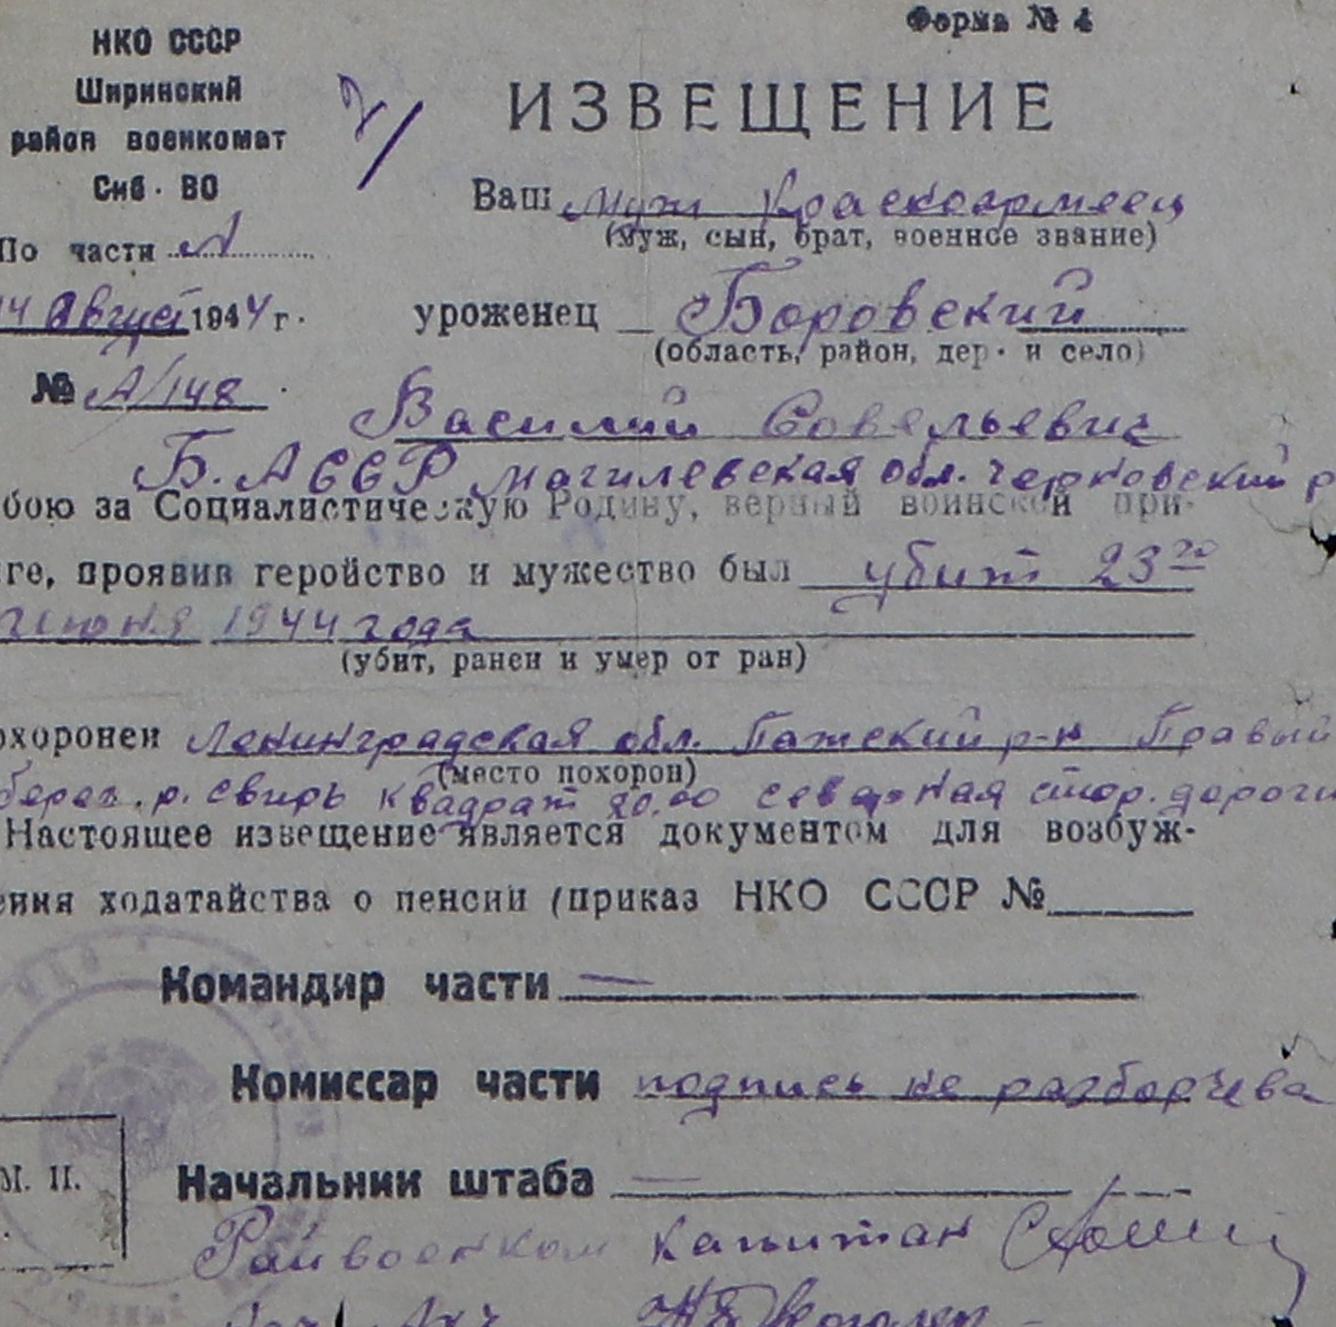 Форма № 4
НКО СССР
Ширинский
район военкомат
Сиб. ВО
ИЗВЕЩЕНИЕ
Ваш муж Красноармеец
(муж, сын, брат, военное звание)
По части
14 август 1944 г.
уроженец Боровский
(область, район, дер. и село)
№ А/148
Василий Совельевич
Б. АССР могилевская обл. черковский р
бою за Социалистическую Родину, верный воинской при-
ге, проявив геройство и мужество был убит 23го
июня 1944 года
(убит, ранен и умер от ран)
охоронен Ленинградская обл. Пажский р-н Правый
(место похорон)
берег. р. свирь квадрат 20.00 северная стор. дороги
Настоящее извещение является документом для возбуж-
ения ходатайства о пенсии (приказ НКО СССР №
Командир части —
Комиссар части подпись не разборчева
М. П.
Начальник штаба —
Райвоенком капитан